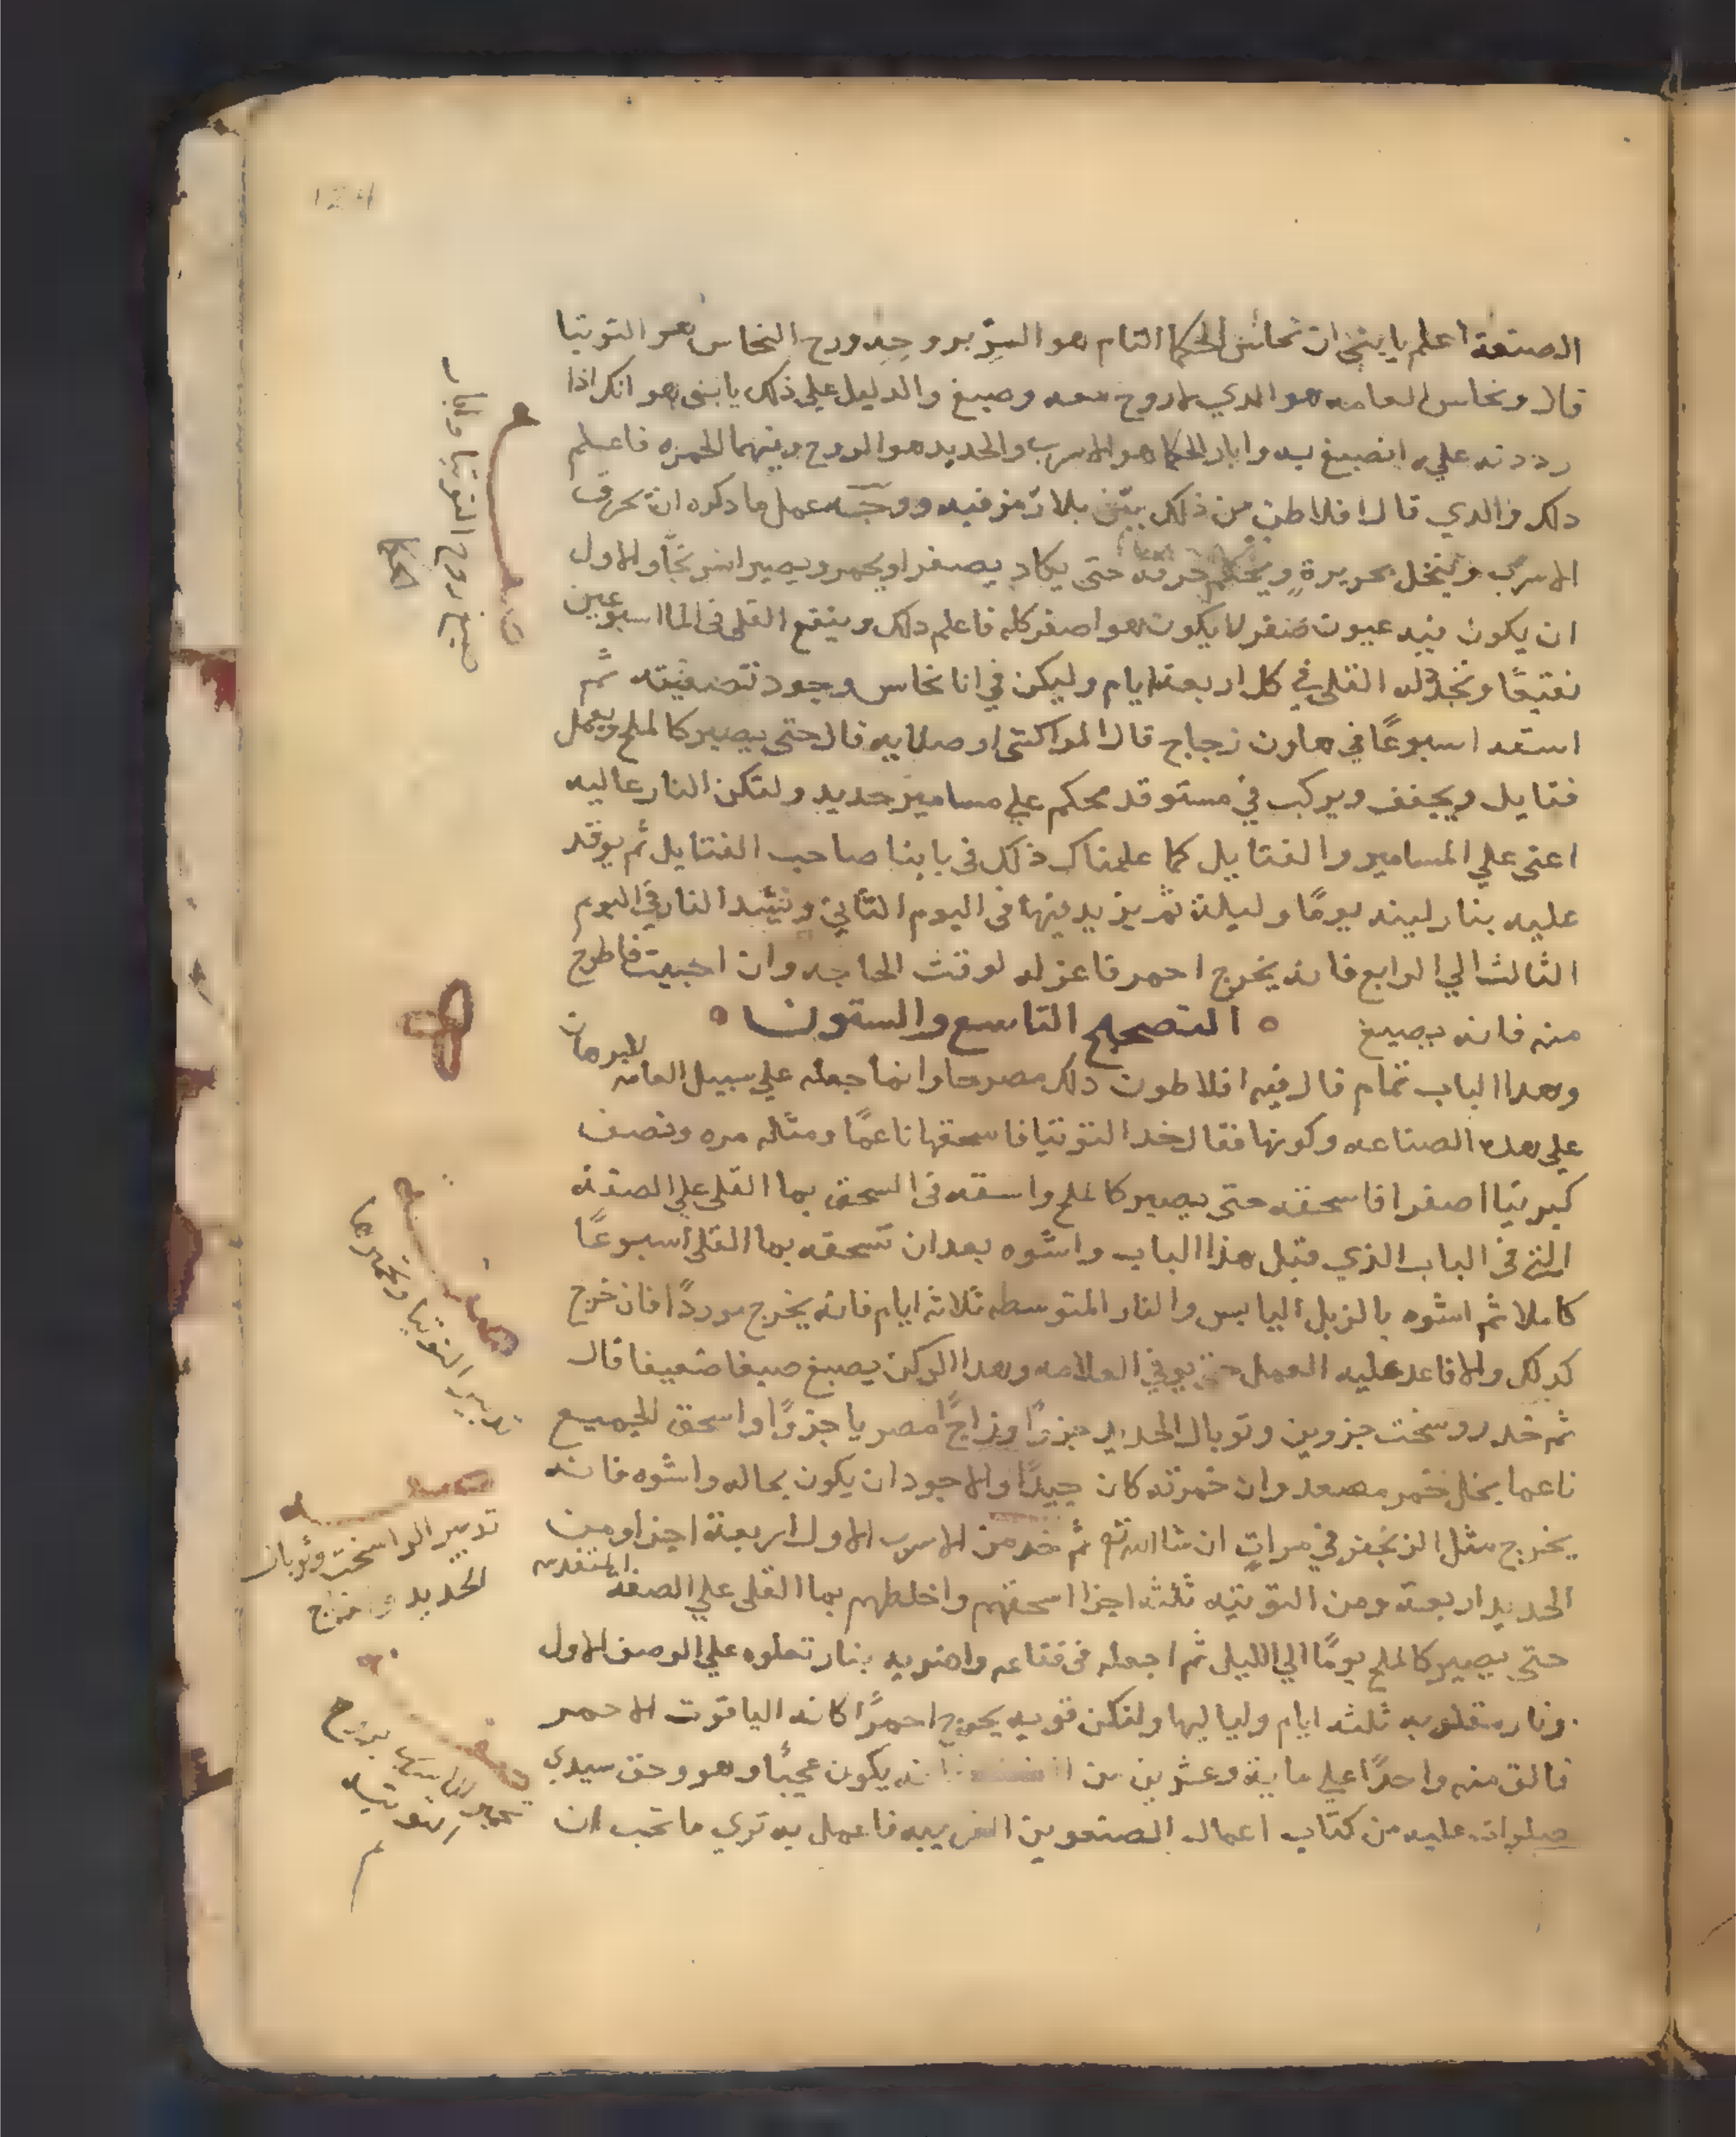 الصنعة اعلم يا بني ان نحاس الحكما التام هو السر بروحه وروح النحاس هو التوتيا
قال ونحاس العامه هو الدي لا روح معه وصبغ والدليل علي ذلك يا بني هو انك اذا
رددته عليه انصبغ به وابار الحكما هو الاسرب والحديد هو الروح وبينهما الحمره فاعلم
دلك والدي قال افلاطن من ذلك بين بلا رمز فيه ووجب عمل ما دكره ان يحرق
الاسرب وينخل بحريرة ويحكم حرقه حتى يكاد يصفر او يحمر ويصير اسرنجا والاول
ان يكون فيه عيون صفر لا يكون هو اصفر كله فاعلم دلك وينقع القلي في الما اسبوعين
نقيعًا ويجدد له القلي في كل اربعة ايام وليكن في انا نحاس وجود تصفيته ثم
اسقه اسبوعًا في هاون زجاج قال المراكشي او صلايه قال حتى يصير كالملح ويعمل
فتايل ويجفف ويركب في مستوقد محكم علي مسامير حديد ولتكن النار عاليه
اعني علي المسامير والفتايل كما علمناك ذلك في بابنا صاحب الفتايل ثم يوقد
عليه بنار لينه يومًا وليلة ثم يزيد فيها في اليوم الثاني وتشد النار في اليوم
الثالث الي الرابع فانه يخرج احمر فاعزله لوقت الحاجه وان احببت فاطرح
منه فانه يصبغ ه التصحيح التاسع والستون ه
وهدا الباب تمام قال فيه افلاطون دلك مصرحا وانما جعله علي سبيل العامه لبرهان
علي هده الصناعه وكونها فقال خد التوتيا فاسحقها ناعمًا ومثاله مره ونصف
كبريتا اصفرا فاسحقه حتى يصير كالملح واسقه في السحق بما القلي علي الصفة
التي في الباب الذي قبل هذا الباب واشوه بعد ان تسحقه بما القلي اسبوعًا
كاملا ثم اشوه بالزبل اليابس والنار المتوسطه ثلاثة ايام فانه يخرج موردًا فان خرج
كدلك والا فاعد عليه العمل حتى يوفي العلامه وهدا الركن يصبغ صبغا ضعيفا قال
ثم خد روسخت جزوين وتوبال الحديد جزءًا وزاجًا مصريا جزوًا واسحق الجميع
ناعما بخل خمر مصعد وان خمرته كان جيدًا والاجود ان يكون بحاله واشوه فانه
يخرج مثل الزنجفر في مرات ان شا الله تع ثم خد من الاسرب الاول اربعة اجزا ومن
الحديد اربعة ومن التوتيه ثلثه اجزا اسحقهم واخلطهم بما القلي علي الصفه المتقدمه
حتى يصير كالملح يومًا الي الليل ثم اجعله في فقاعه واضربه بنار تعلوه علي الوصف الاول
وناره مقلوبه ثلثه ايام ولياليها ولتكن قويه يخرج احمرًا كانه الياقوت الاحمر
فالق منه واحدًا علي ماية وعشرين من يكون عجبًا وهو وحق سيدي
صلوات عليه من كتاب اعمال الصنعوين الغريبه فاعمل به تري ما تحب ان
صبغ روح التوتيا وابار
الحكما
تدبير التوتيا وتحميرها
تدبير الراسخت وتوبال
الحديد والزاج
التوتيه